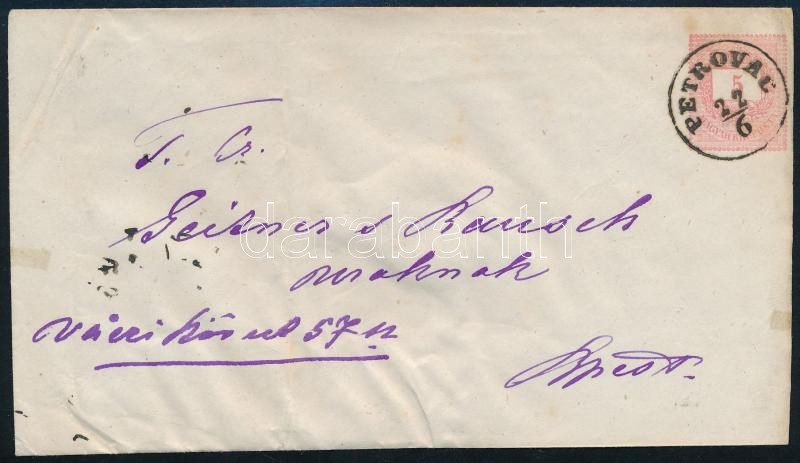 PETROVAC
22/6
5
T. Cz.
Geitner s Rausch
uraknak
Váczi körut 57 sz
Bpest.
darabanth